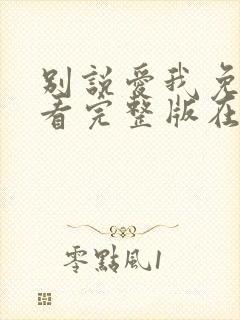 別說愛我免
看完整版在
零點風1